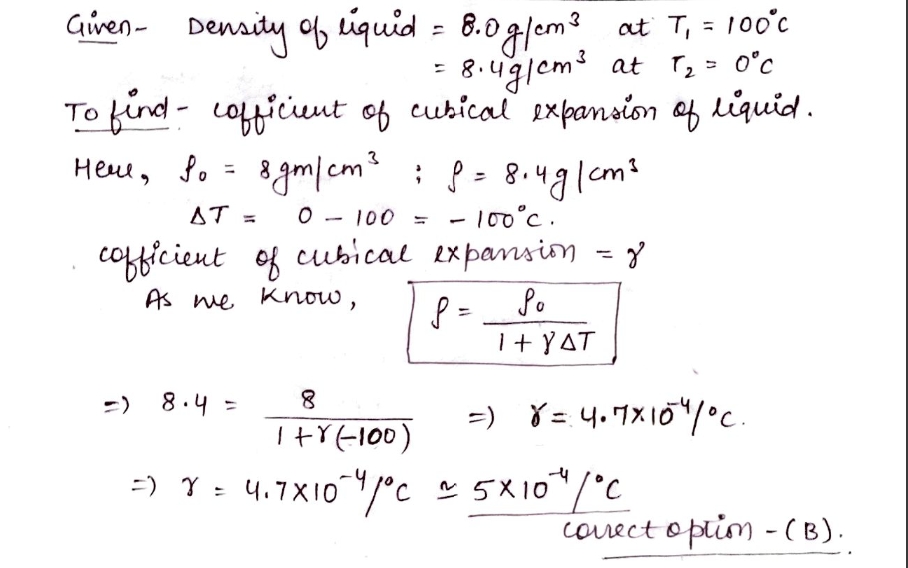 Given- Density of liquid = 8.0 g/cm³ at T₁ = 100°C
= 8.4g/cm³ at T₂ = 0°C
To find - cofficient of cubical expansion of liquid.
Here, ρ₀ = 8gm/cm³ ; ρ = 8.4g/cm³
ΔT = 0 - 100 = - 100°C.
cofficient of cubical expansion = γ
As we know, ρ = ρ₀ / (1 + γΔT)
=) 8.4 = 8 / (1+γ(-100)) =) γ = 4.7×10⁻⁴/°C.
=) γ = 4.7×10⁻⁴/°C ≃ 5×10⁻⁴/°C
correct option - (B).